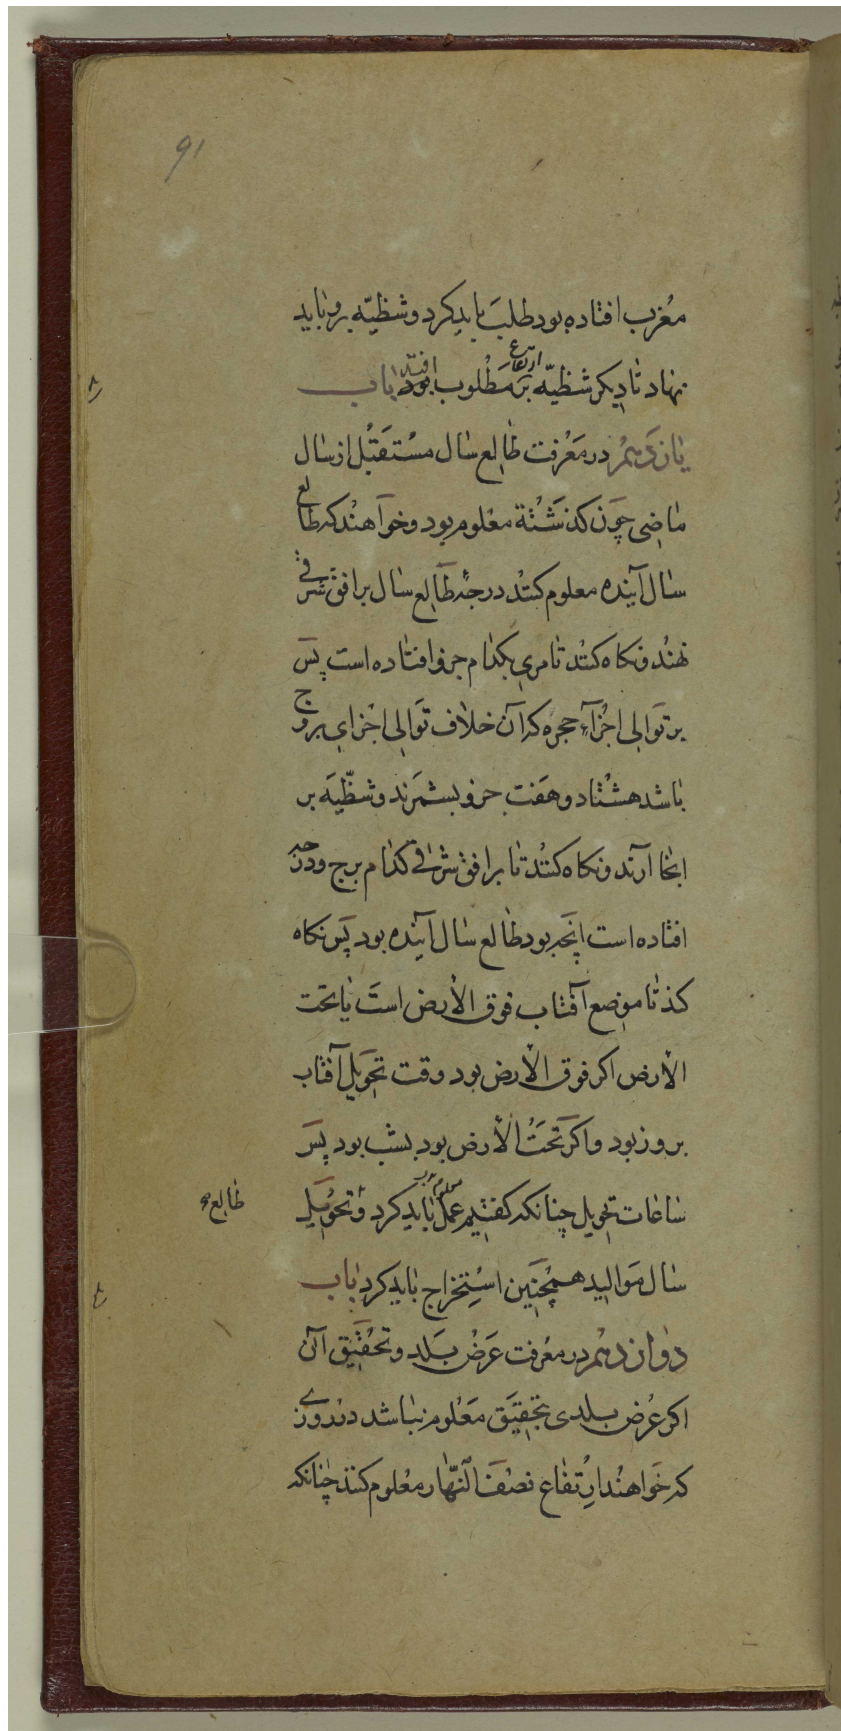 91
مغرب افتاده بود طلب باید کرد و شظیّه برو باید
نهاد تا دیکر شظیّه بر ارتفاع مطلوب افتد بود باب
یازدهم در معرفت طالع سال مستقبل از سال
ماضی چون کذشته معلوم بود و خواهند که طالع
سال آینده معلوم کنند درجهٔ طالع سال بر افق شرقی
نهند و نکاه کنند تا مری بکدام جزو افتاده است پس
بر توالی اجزآء حجره که آن خلاف توالی اجزای بروج
باشد هشتاد و هفت جزو بشمرند و شظّیه بر
انجا ارند و نکاه کنند تا بر افق شرقی کدام برج و درجه
افتاده است انچه بود طالع سال آینده بود پس نکاه
کند تا موضع آفتاب فوق الأرض است یا تحت
الأرض اکر فوق الأرض بود وقت تحویل آفتاب
بروز بود و اکر تحت الأرض بود بشب بود پس
ساعات تحویل چنانکه کفتیم عمل باید کرد و تحویل
طالع
سال موالید همچنین استخراج باید کرد باب
دوازدهم در معرفت عرض بلد و تحقیق آن
اکر عرض بلدی بتحقیق معلوم نباشد در روزی
که خواهند ارتفاع نصف النهار معلوم کنند چنانکه